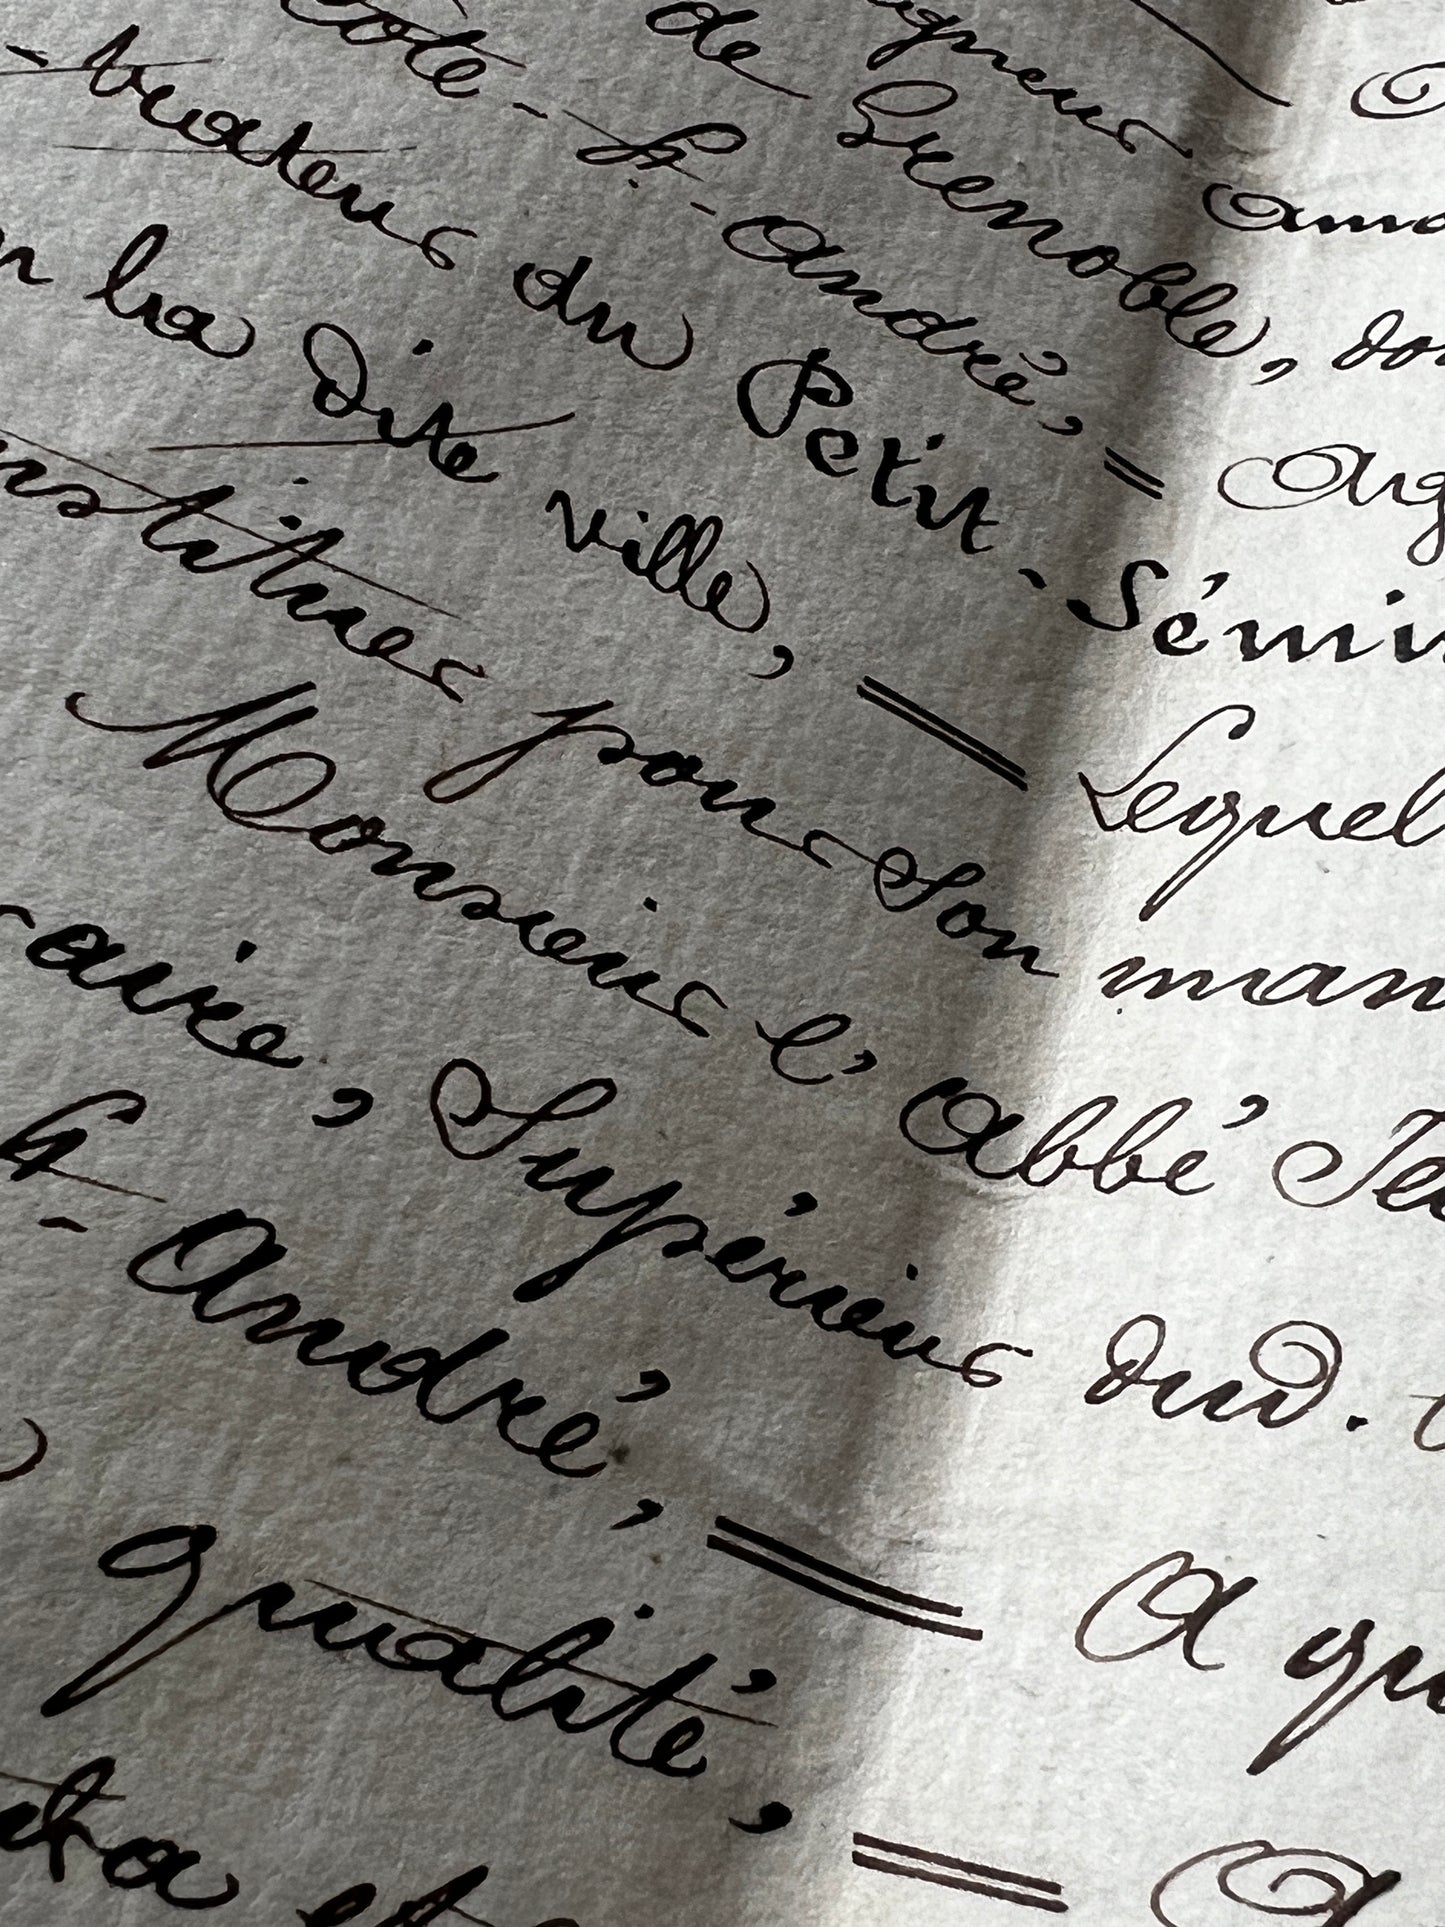 igneur
de Grenoble,
côte - St. - André, =
trateur du Petit - Sémi
la dite ville, = Lequel
nstituer pour Son man
Monsieur l'Abbé
aire, Supérieur dud.
St. - André, = A qu
qualité, = A
et